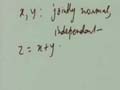 x, y : jointly normal,
independent-
z = x+y.